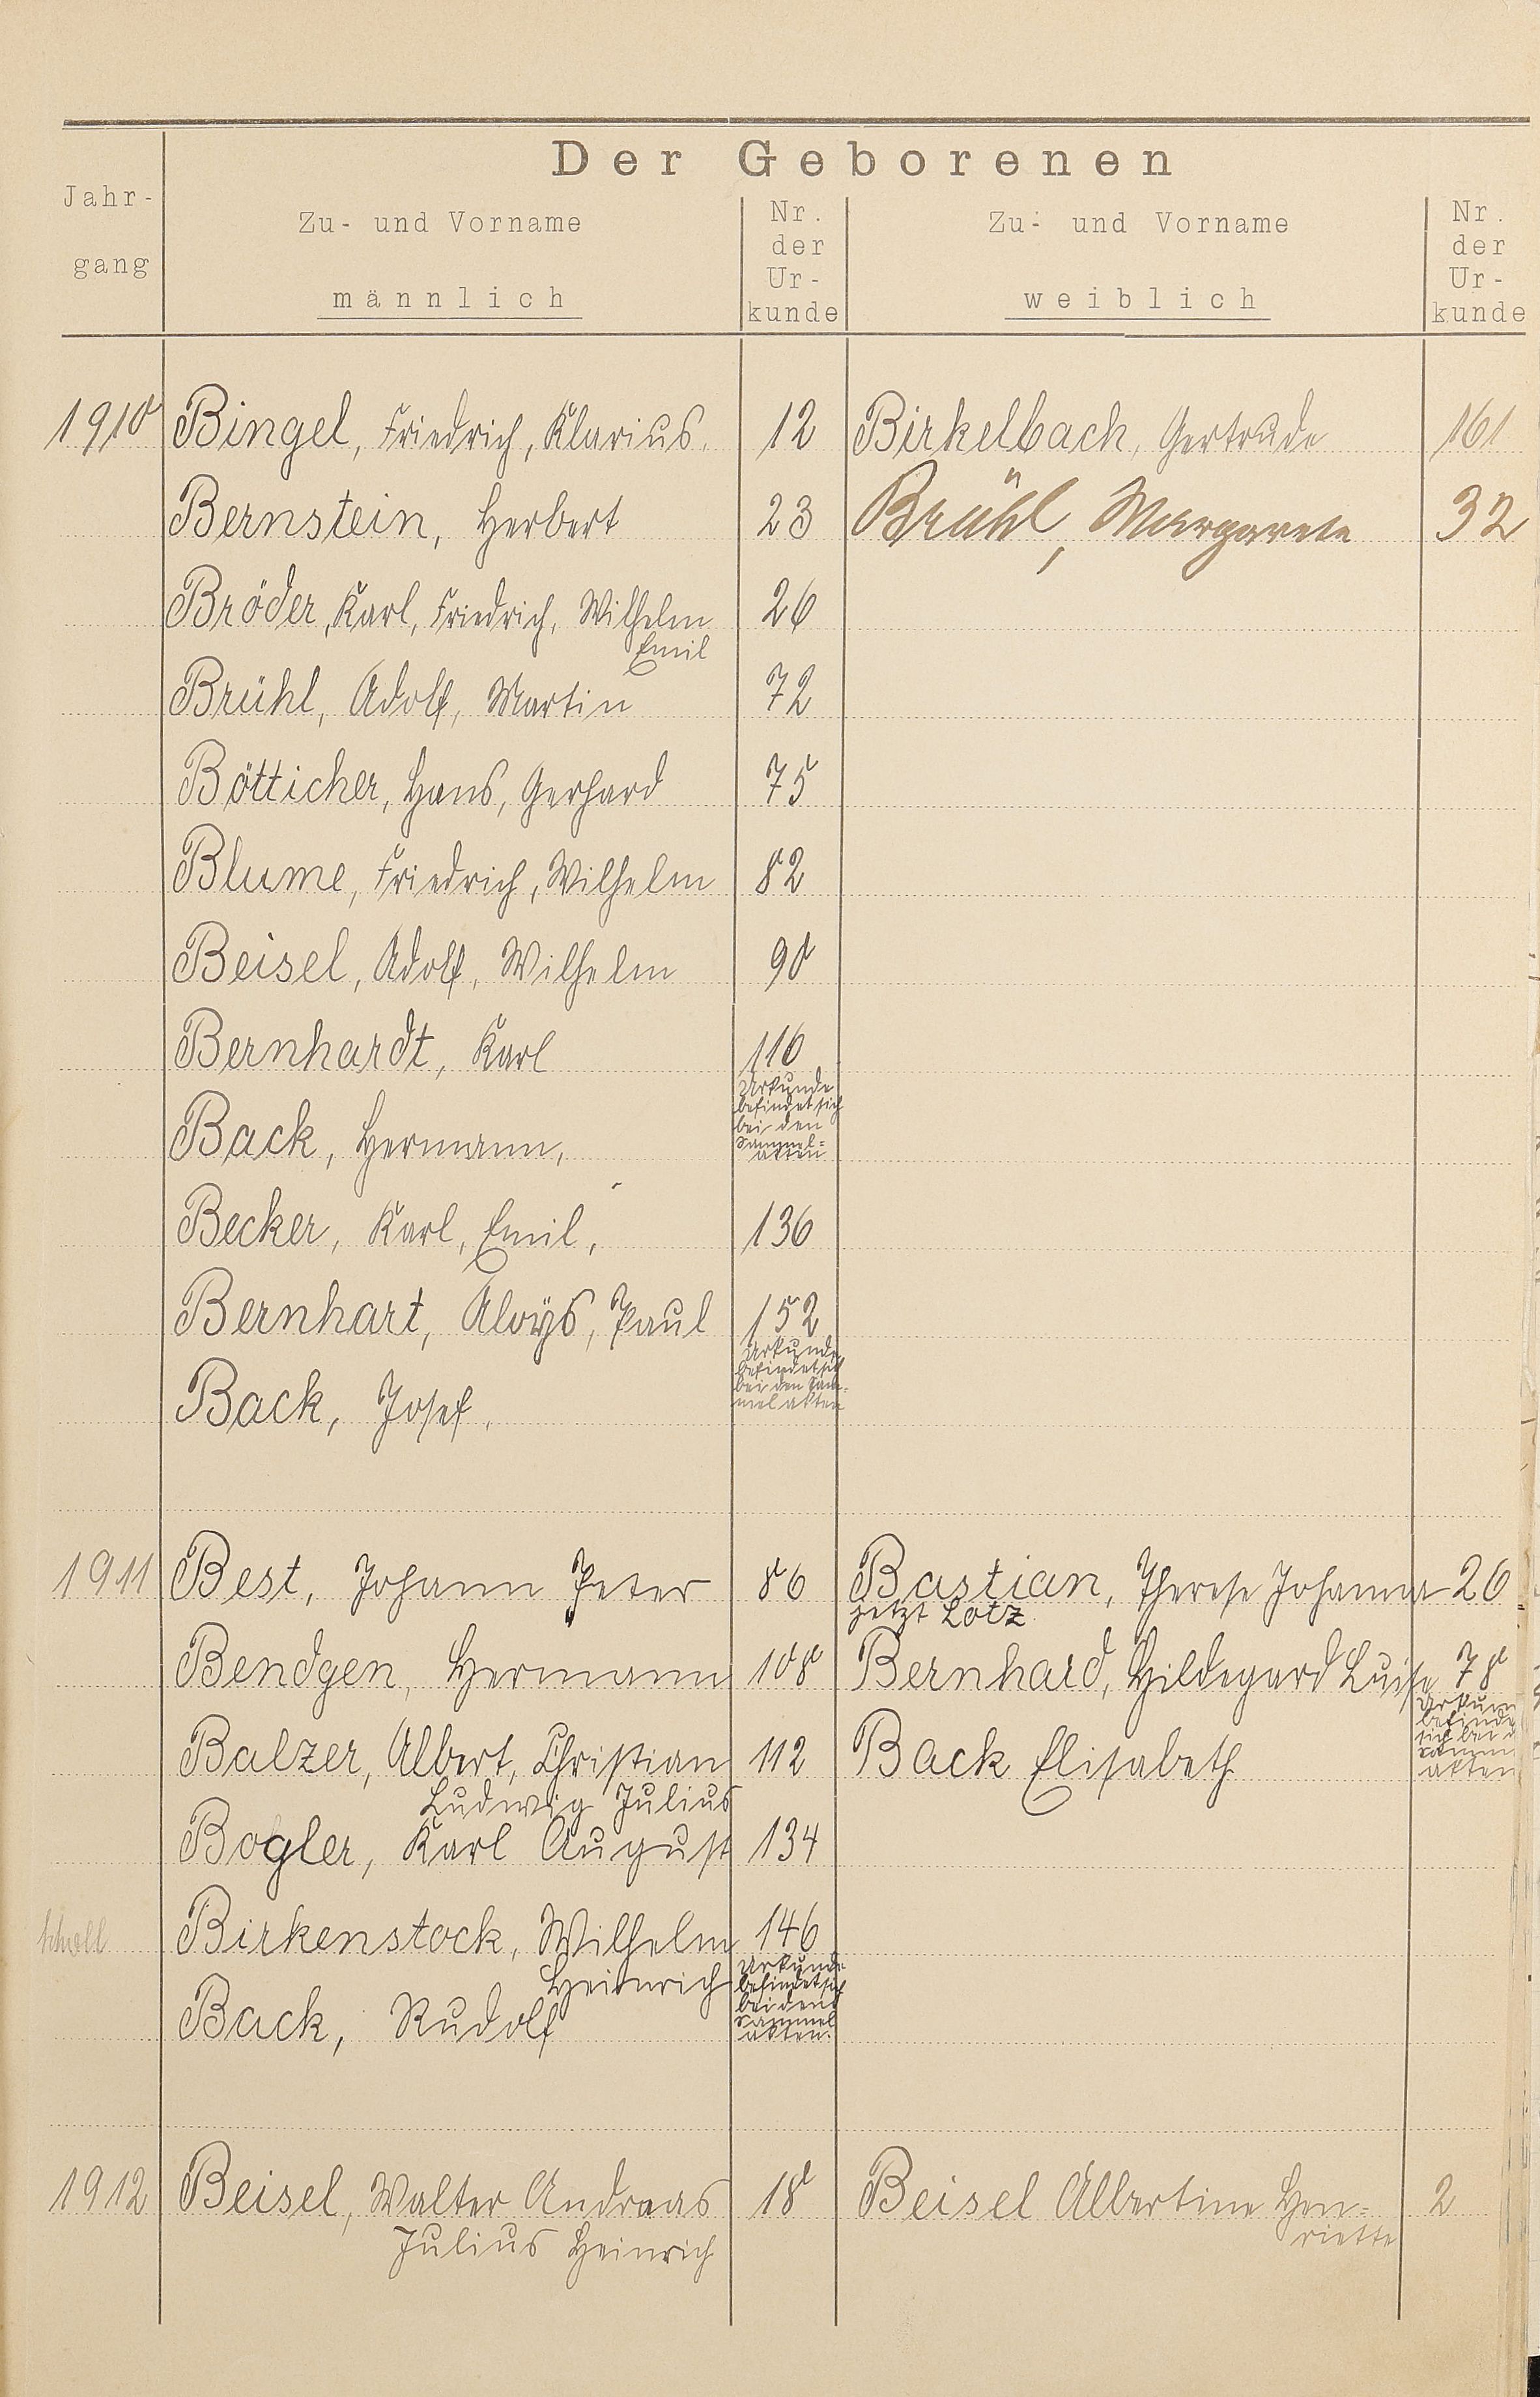 Der Geborenen
Jahr-
gang
Zu- und Vorname
männlich
Nr.
der
Ur-
kunde
Zu- und Vorname
weiblich
Nr.
der
Ur-
kunde
1910 Bingel, Friedrich, Klarius. 12 Birkelbach, Gertrude 161
Bernstein, Herbert 23 Brühl, Margarete 32
Bröder, Karl, Friedrich, Wilhelm 26
Emil
Brühl, Adolf, Martin 72
Bötticher, Hans, Gerhard 75
Blume, Friedrich, Wilhelm 82
Beisel, Adolf, Wilhelm 90
Bernhardt, Karl 116
Back, Hermann, Urkunde
befindet sich
bei den
Sammel=
akten
Becker, Karl, Emil, 136
Bernhart, Aloÿs, Paul 152
Back, Josef. Urkunde
befindet sich
bei den Sam-
mel akten
1911 Best, Johann Peter 86 Bastian, Therese Johanna 26
jetzt Lotz
Bendgen, Hermann 108 Bernhard, Hildegard Luise 78
Balzer, Albert, Christian 112 Back Elisabeth Urkun
befinde
sich bei d
Samm
akten
Ludwig Julius
Bogler, Karl August 134
Birkenstock, Wilhelm 146
Heinrich
Back, Rudolf Urkunde
befindet sich
bei den
Sammel
akten.
1912 Beisel, Walter Andreas 18 Beisel Albertine Hen= 2
Julius Heinrich riette